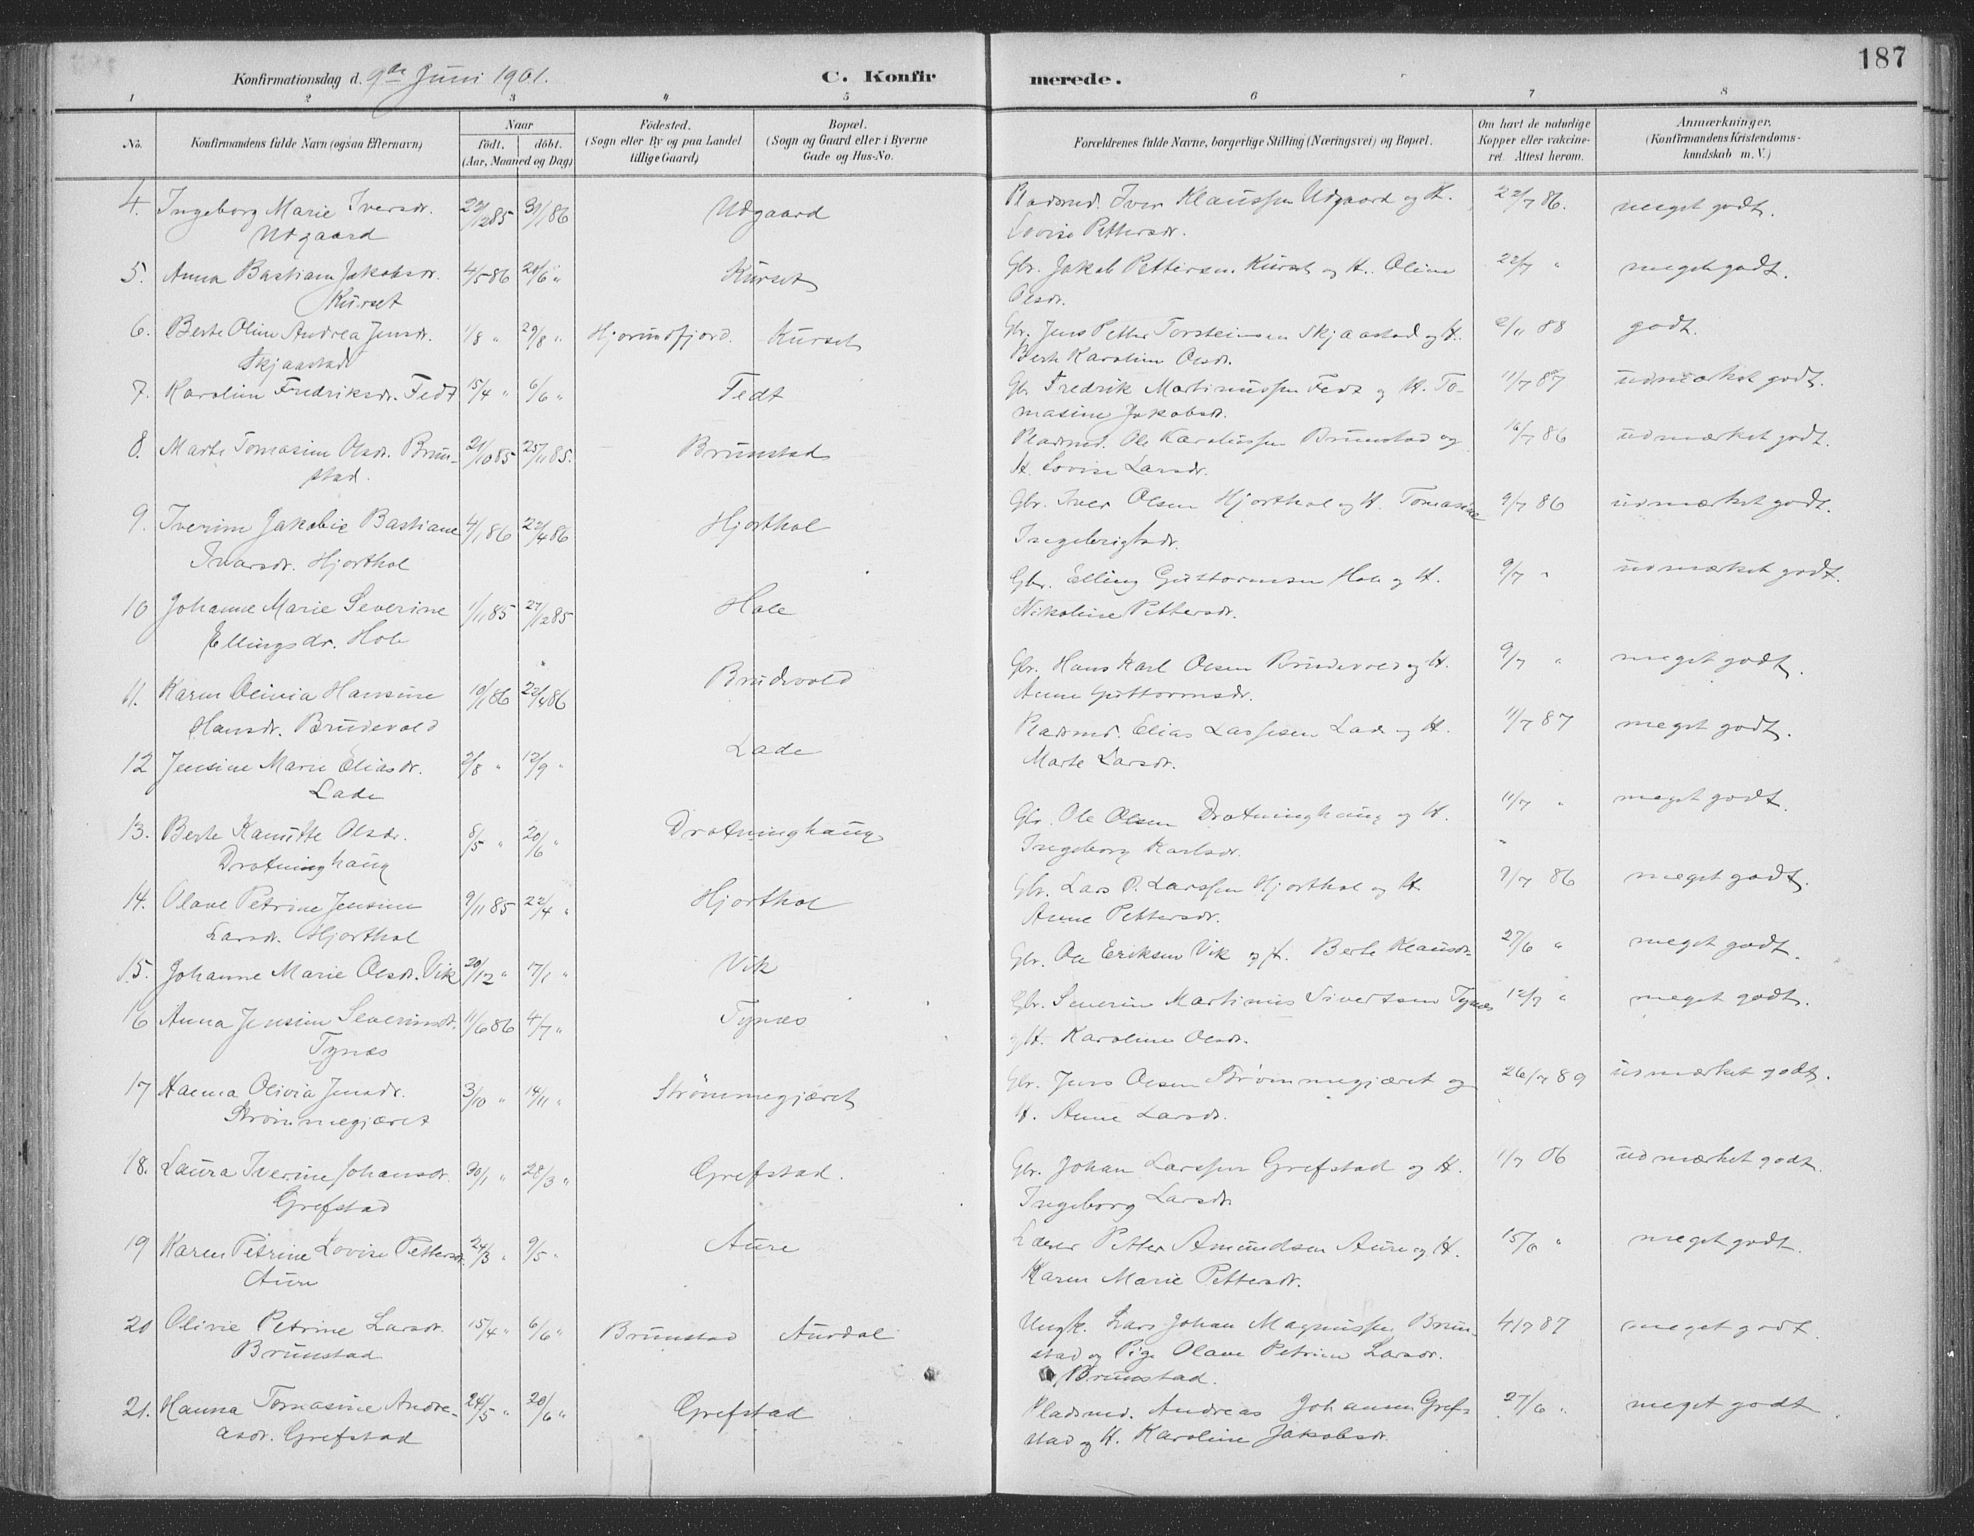 187
Konfirmationsdag d. 9de Juni 1901. C. Konfirmerede.
1 2 3 4 5 6 7 8
No. Konfirmandens fulde Navn (ogsaa Efternavn) Naar født. døbt. (Aar, Maaned og Dag) Fødested. (Sogn eller By og paa Landet tillige Gaard) Bopæl. (Sogn og Gaard eller i Byerne Gade og Hus-No. Forældrenes fulde Navne, borgerlige Stilling (Næringsvei) og Bopæl. Om havt de naturlige Kopper eller vakcineret. Attest herom. Anmærkninger. (Konfirmandens Kristendomskundskab m. V.)
4. Ingeborg Marie Iversdr. 22/12 85 31/1 86 Udgaard Pladsmd. Iver Klaussen Udgaard og H. 22/7 86. meget godt.
Udgaard Lovise Pettersdr.
5. Anna Bastiane Jakobsdr. 4/5 86 20/6 " Kurset Gbr. Jakob Pettersen Kurset og H. Oline 22/7 " meget godt.
Kurset Olsdr.
6. Berte Oline Andrea Jensdr. 1/8 " 29/8 " Hjørundfjord. Kurset Gbr. Jens Petter Torsteinsen Skjaastad og H. 2/11 88 godt.
Skjaastad Berte Karoline Olsdr.
7. Karoline Fredriksdr. Fedt 15/4 " 6/6 " Fedt Gbr. Fredrik Martinussen Fedt og H. To- 11/7 87 udmærket godt.
masine Jakobsdr.
8. Marte Tomasine Olsdr. Brun- 21/10 85 25/11 85. Brunstad Pladsmd. Ole Karolussen Brunstad og 16/7 86 udmærket godt.
stad. H. Lovise Larsdr.
9. Iverine Jakobie Bastiane 4/1 86 22/4 86 Hjorthol Gbr. Iver Olsen Hjorthol og H. Tomasine 9/7 86 udmærket godt.
Ivarsdr. Hjorthol Ingebrigtsdr.
10 Johanne Marie Severine 1/11 85 27/12 85 Hole Gbr. Elling Guttormsen Hole og H. 9/7 " udmærket godt.
Ellingsdr. Hole Nikoline Pettersdr.
11. Karen Olivia Hansine 10/1 86 22/4 86 Brudevold Gbr. Hans Karl Olsen Brudevold og H. 9/7 " meget godt.
Hansdr. Brudevold Anne Guttormsdr.
12 Jensine Marie Eliasdr. 2/8 " 12/9 " Lade Pladsmd. Elias Lassesen Lade og H. 11/7 87 meget godt.
Lade Marte Larsdr.
13. Berte Kanutte Olsdr. 8/5 " 20/6 " Drotninghaug Gbr. Ole Olsen Drotninghaug og H. 11/7 " meget godt.
Drotninghaug Ingeborg Karlsdr.
14. Olave Petrine Jensine 9/11 85 22/4 " Hjorthol Gbr. Lars P. Larssen Hjorthol og H. 9/7 86 meget godt.
Larsdr. Hjorthol Anne Pettersdr.
15. Johanne Marie Olsdr. Vik 20/12 " 7/1 " Vik Gbr. Ole Eriksen Vik og H. Berte Klausdr. 27/6 " meget godt.
16 Anna Jensine Severinsdr. 11/6 86 4/7 " Tynæs Gbr. Severin Martinus Sivertsen Tynæs 12/7 " meget godt.
Tynæs og H. Karoline Olsdr.
17 Hanna Olivia Jensdr. 3/10 " 14/11 " Strømmegjæret Gbr. Jens Olsen Strømmegjæret og 26/7 89 udmærket godt.
Strømmegjæret H. Anne Larsdr.
18. Laura Iverine Johansdr. 30/1 " 28/3 " Grefstad. Gbr. Johan Larssen Grefstad og H. 1/7 06 udmærket godt.
Grefstad Ingeborg Larsdr.
19 Karen Petrine Lovise Pettersdr. 24/3 " 9/5 " Aure Lærer Petter Amundsen Aure og H. 15/6 " meget godt.
Aure Karen Marie Pettersdr.
20 Olivie Petrine Larsdr. 15/4 " 6/6 " Brunstad Aurdal Ungk. Lars Johan Magnussen Brun- 4/7 87 meget godt.
Brunstad stad og Pige Olave Petrine Larsdr.
Brunstad.
21. Hanna Tomasine Andre- 24/5 " 20/6 " Grefstad Pladsmd. Andreas Johansen Gref- 27/6 " meget godt.
asdr. Grefstad stad og H. Karoline Jakobsdr.